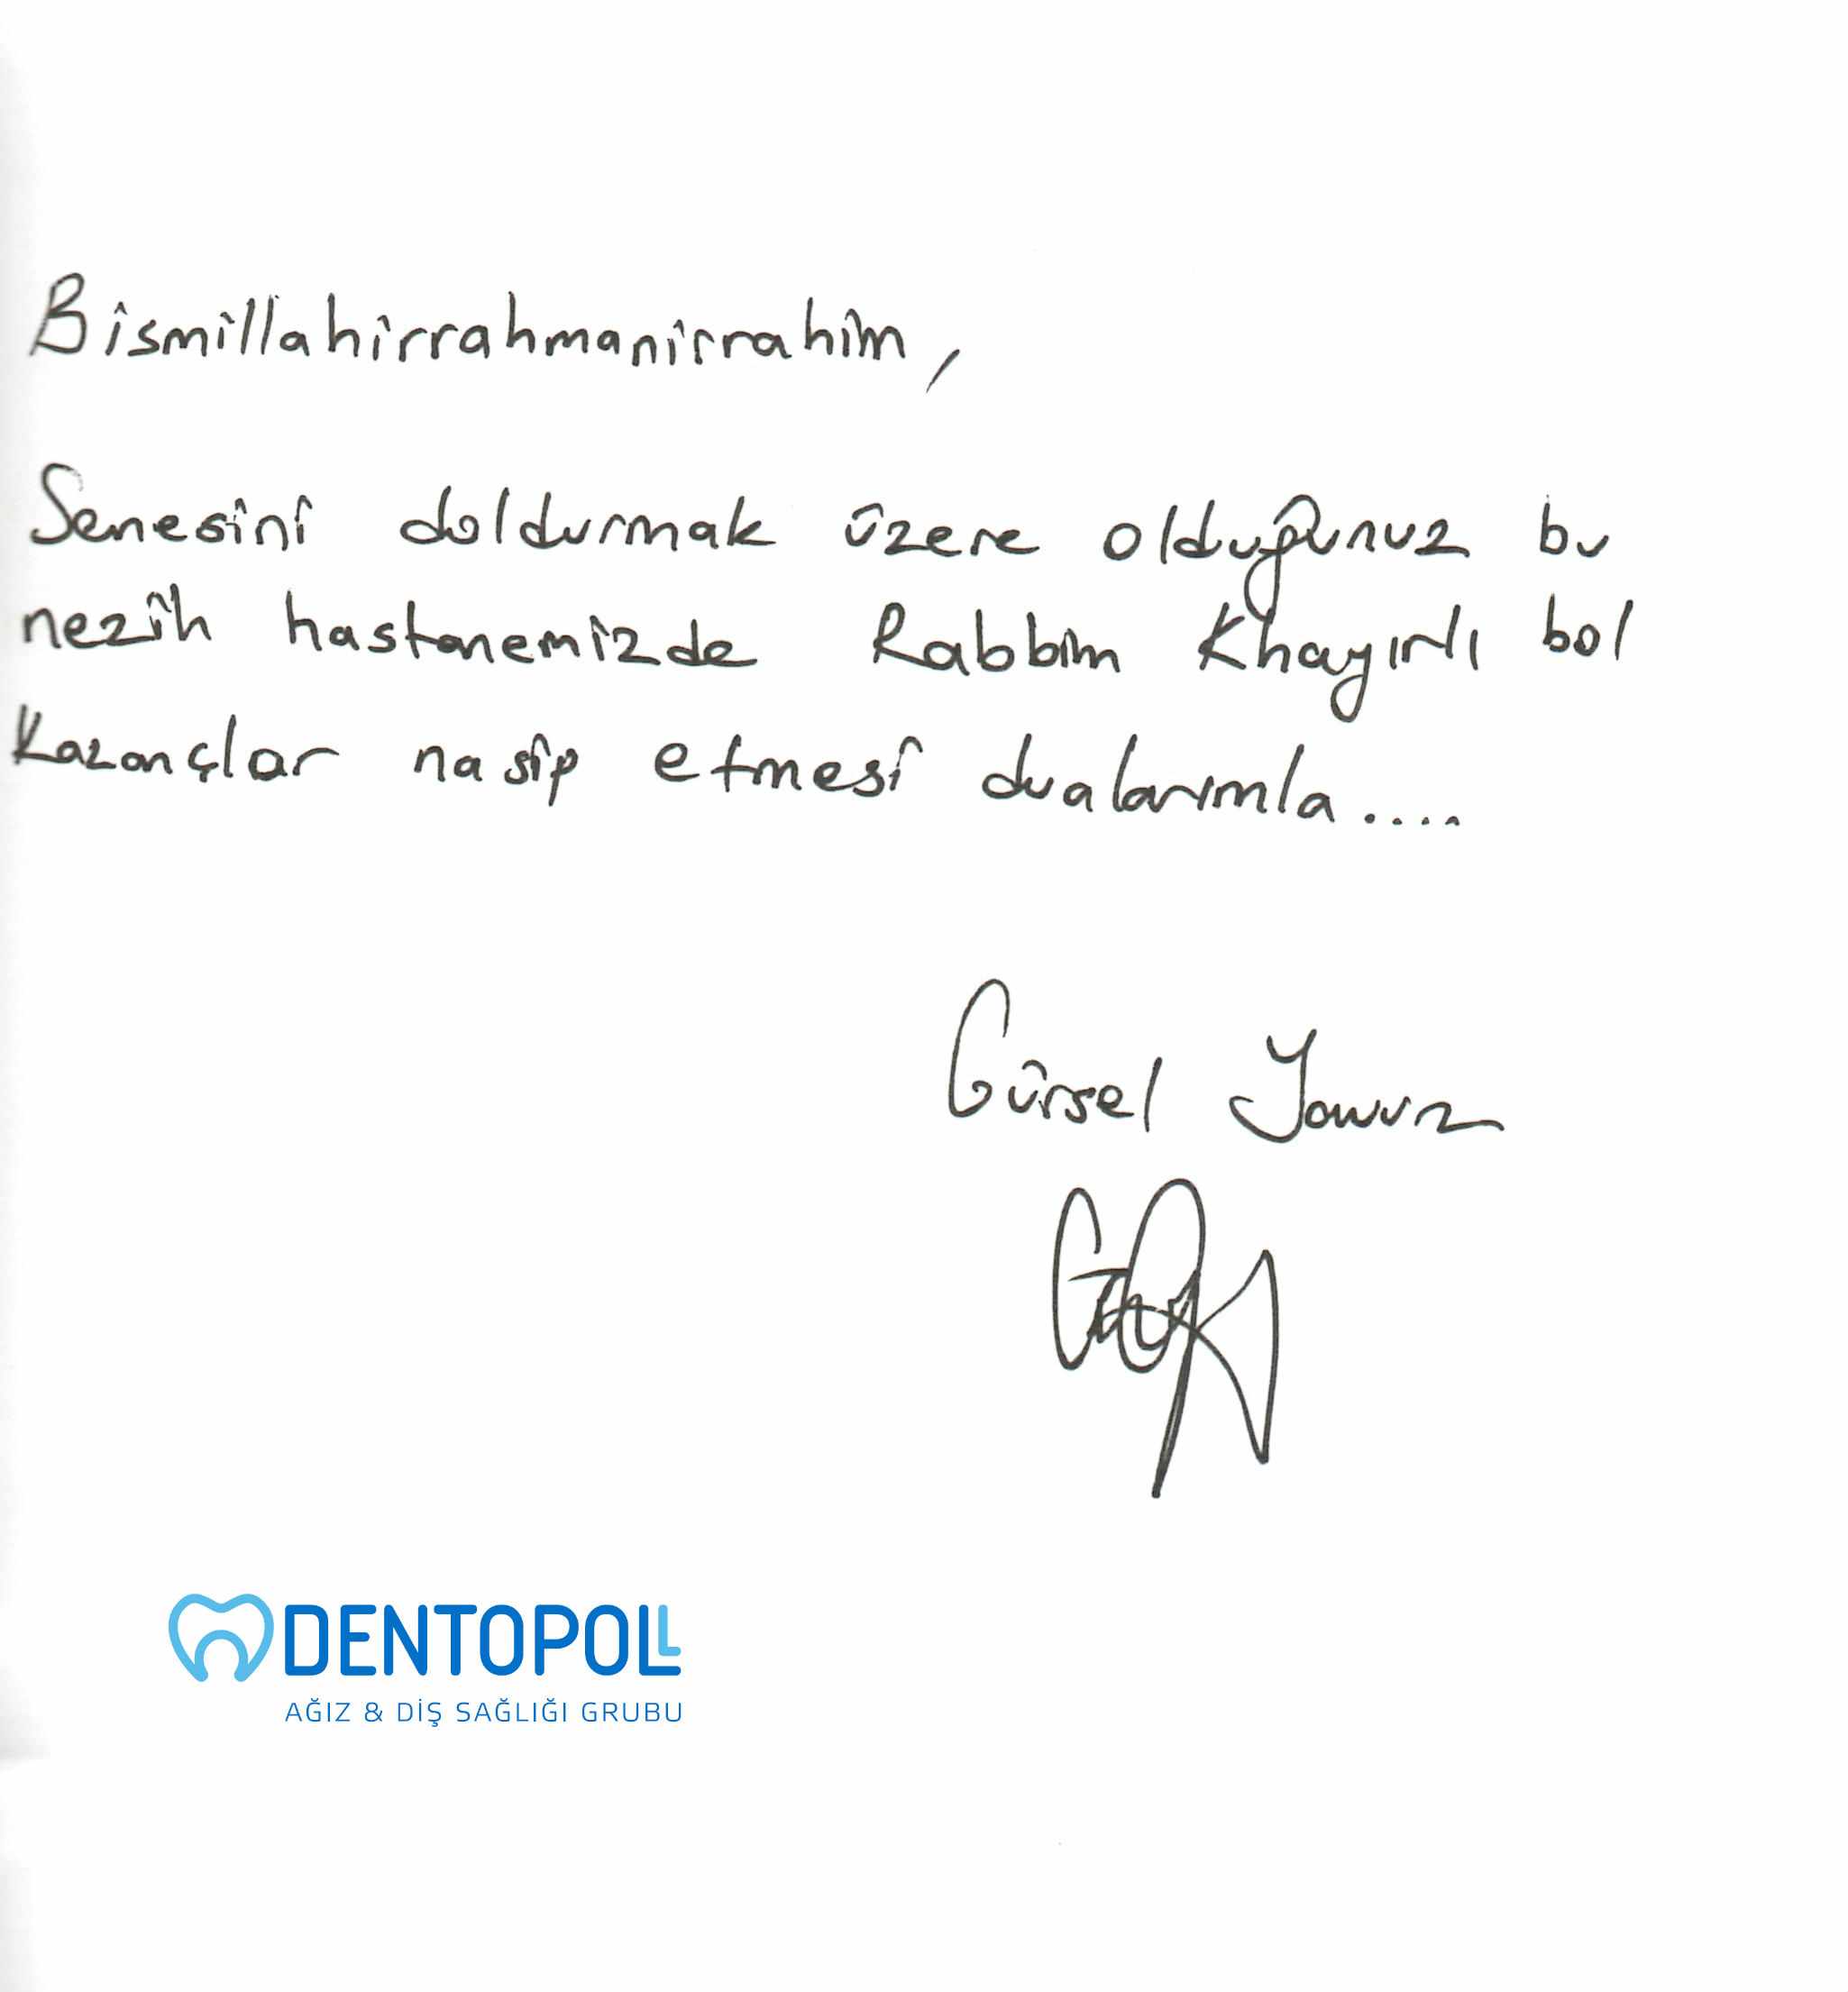 Bismillahirrahmanirrahim,
Senesini doldurmak üzere olduğunuz bu
nezih hastanemizde Rabbim Khayırlı bol
Kazançlar nasip etmesi dualarımla.....
Gürsel Yavuz
DENTOPOLL
AĞIZ & DİŞ SAĞLIĞI GRUBU